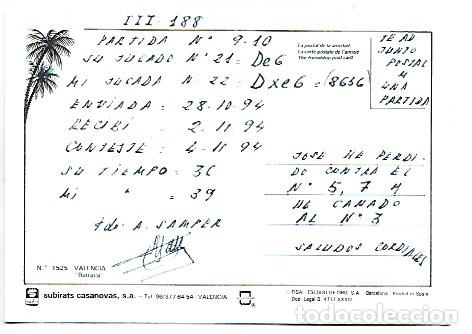 III - 188
PARTIDA Nº 9-10
SU JUGADO Nº 21 = De6
MI JUGADA Nº 22 = Dxe6 = (8656)
ENVIADA = 28-10-94
RECIBI = 2-11-94
CONTESTE = 4-11-94
SU TIEMPO = 36
MI " = 39
fdo. A. SAMPER
La postal de la amistad
La carte postale de l'amitié
The friendship post card
TE AD
JUNTO
POSTAL
Y
UNA
PARTIDA
JOSE HE PERDI-
DO CONTRA EL
Nº 5, 7 Y
HE GANADO
AL Nº 3
SALUDOS CORDIALES
N.º 1525 VALENCIA
Barraca
subirats casanovas, s.a. - Tel. 96/377 64 54 - VALENCIA
FISA - ESCUDO DE ORO, S.A. Barcelona Printed in Spain
Dep. Legal B.
todocoleccion